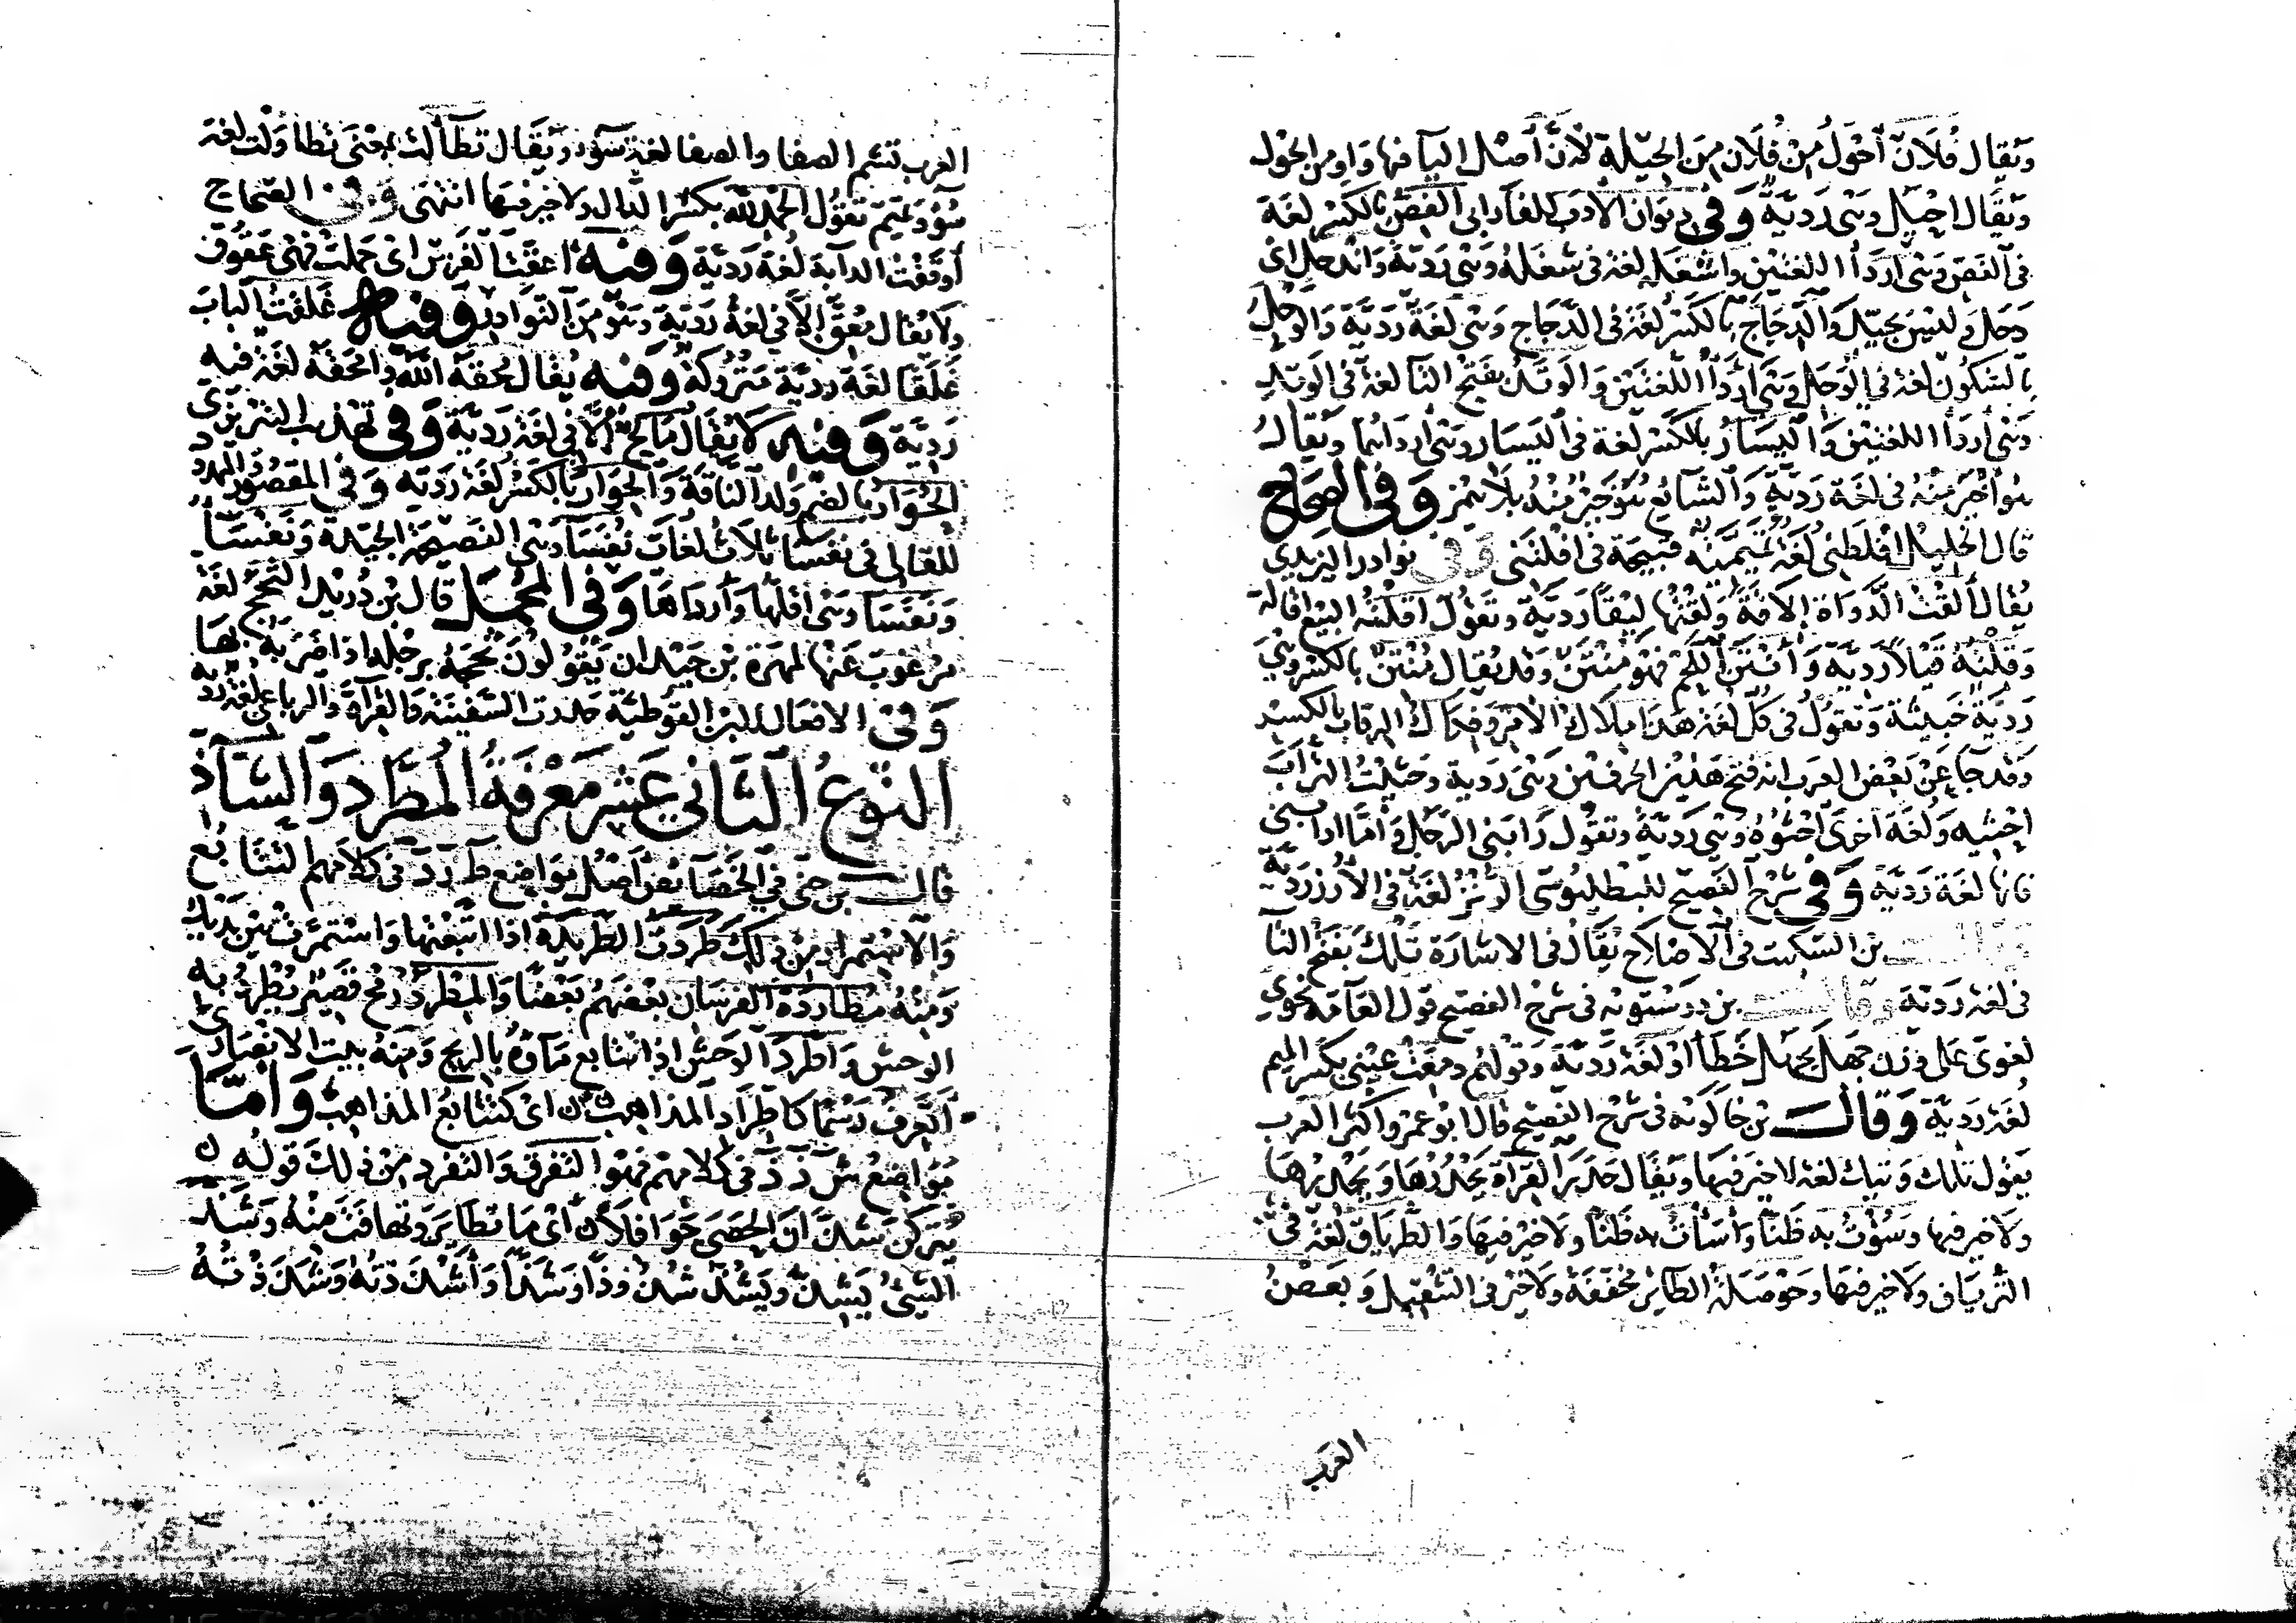 ويقال فلان أحول من فلان من الحيلة لأن أصل اليا فيها واو من الحول
ويقال احيل وهي رديّة وفي ديوان الأدب للفارابي الفص بالكسر لغة
في الفص وهي أردأ اللغتين واشغله لغة في شغله وهي رديّة واندخل اى
دخل وليس بجيّد والدجاج بالكسر لغة في الدجاج وهي لغة رديّة والوحل
بالسكون لغة في الوحل وهي أردأ اللغتين والوتد بفتح التا لغة في الوتد
وهي أردأ اللغتين واليسار بالكسر لغة في اليسار وهي أردأهما ويقال
هو أخير منه في لغة رديّة والشائع هو خير منه بلا همز وفي الصحاح
قال الخليل افلطني لغة تميميّة قبيحة في افلتني وفي نوادر اليزيدي
يقال ألقت الدواة إلاقة ولقتها ليقا رديّة وتقول اقلته البيع اقالة
وقلته قيلا رديّة وأنتن اللحم فهو منتن وقد يقال منتن بالكسر وهي
رديّة خبيثة وتقول في كل لغة هذا ملاك الأمر وفكاك الرقاب بالكسر
وقد جا عن بعض العرب انه فتح هذين الحرفين وهي ردية وحثيت التراب
احثيه ولغة اخرى أحثوه وهي رديّة وتقول رابني الرجل وأما ارابني
فانها لغة رديّة وفي شرح الفصيح للبطليوسي الرنز لغة في الأرز رديّة
وقال بن السكيت في الاصلاح يقال في الاشارة تلك بفتح التا
في لغة رديّة وقال بن درستويه في شرح الفصيح قول العامة نحوي
لغوى على وزن جهل يجهل خطأ أو لغة رديّة وقولهم دمعت عيني بكسر الميم
لغة رديّة وقال بن خالويه في شرح الفصيح قال ابو عمرو اكثر العرب
يقول تلك وتيك لغة لا خير فيها ويقال حدر القراة يحدرها ويحدرها
ولا خير فيها وسؤت به ظنا وأسأت به ظنا ولا خير فيها والطرياق لغة في
الترياق ولا خير فيها وحوصلة الطائر مخففة ولا خير في التثقيل وبعض
العرب
العرب تشم الصفا والصفا لغة سوء ويقال تطأللت بمعنى تطاولت لغة
سوء وتميم تقول الحمد لله بكسر الدال ولا خير فيها انتهى وفي الصحاح
أوقفت الدابة لغة رديّة وفيه اعقت الفرس اى حملت فهي عقوق
ولا يقال معق إلا في لغة رديّة وهو من النوادر وفيه غلقت الباب
غلقا لغة رديّة متروكة وفيه يقال محقه الله وامحقه لغة فيه
رديّة وفيه لا يقال مالح إلا في لغة رديّة وفي تهذيب التبريزي
الحوار بالضم ولد الناقة والحوار بالكسر لغة رديّة وفي المقصور والممدود
للقالي في نفسا ثلاث لغات نفسا وهي الفصيحة الجيّدة ونفسا
ونفسا وهي اقلها وأرداها وفي المجمل قال بن دريد التحجج لغة
مرغوب عنها لمهرة بن حيدان يقولون حجه برجله اذا ضربه بها
وفي الافعال لابن القوطية حدرت السفينة والقراة والرباعي لغة رديه
النوع الثاني عشر معرفة المطرد والشاذ
قال بن جني في الخصائص أصل مواضع ط ر د في كلامهم التتابع
والاستمرار من ذلك طردت الطريدة اذا اتبعتها واستمرت بين يديك
ومنه مطاردة الفرسان بعضهم بعضا والمطرد رمح قصير يطرد به
الوحش واطرد الوحش اذا تتابع ماؤه بالريح ومنه بيت الانصارى
أتعرف رسما كاطراد المذاهب اى كتتابع المذاهب وأما
مواضع ش ذ ذ في كلامهم فهو التفرق والتفرد من ذلك قوله
يتركن شذان الحصى جوافلا اى ما تطاير وتهافت منه وشذ
الشيئ يشذ ويشذ شذوذا وشذا وأشذذته وشذذته